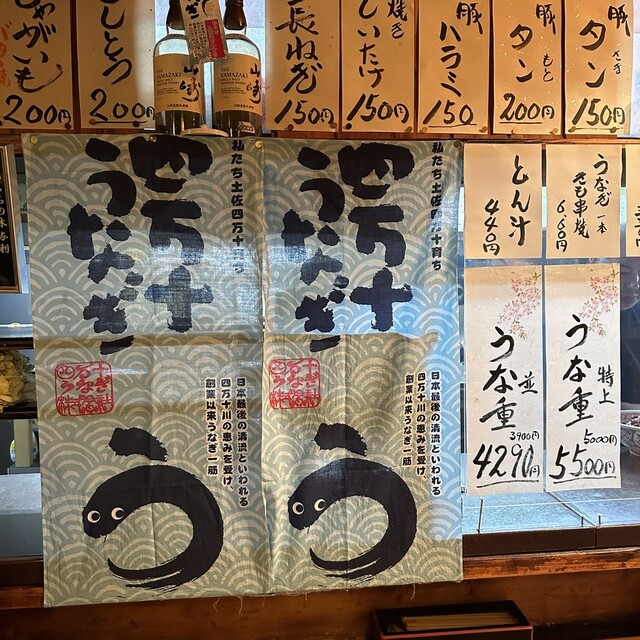 じゃがいも
バター焼
200円
ししとう
200円
山崎
YAMAZAKI
山崎
YAMAZAKI
長ねぎ
150円
焼き
しいたけ
150円
豚
ハラミ
150
豚
タン
もと
200円
豚
タン
さき
150円
私たち土佐四万十育ち
四万十
うなぎ
日本最後の清流といわれる
四万十川の恵みを受け、
創業以来うなぎ一筋
う
私たち土佐四万十育ち
四万十
うなぎ
日本最後の清流といわれる
四万十川の恵みを受け、
創業以来うなぎ一筋
う
とん汁
440円
うなぎ 一本
きも串焼
660円
うな重 並
3900円
4290円
うな重 特上
5000円
5500円